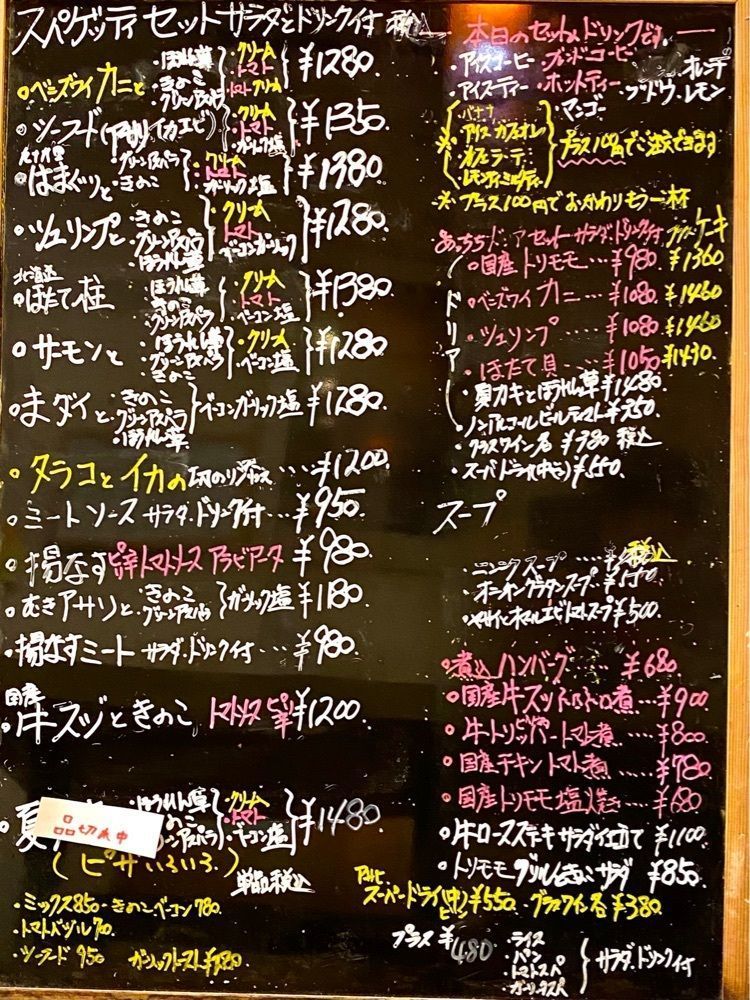 スパゲッティ セット サラダとドリンク付 税込
・ベニズワイカニと ・ほうれん草 ・きのこ ・グリーンアスパラ ・クリーム ・トマト ・トマトクリーム ¥1280
・シーフード(アサリイカエビ) ・クリーム ・トマト ・ガーリック塩 ¥1350
・はまぐりと ・グリーンアスパラ ・きのこ ・クリーム ・トマト ・ガーリック塩 ¥1380
・シュリンプと ・きのこ ・グリーンアスパラ ・ほうれん草 ・クリーム ・トマト ・ベーコンガーリック ¥1280
北海道
・ほたて貝柱 ・ほうれん草 ・きのこ ・グリーンアスパラ ・クリーム ・トマト ・ベーコン塩 ¥1380.
・サーモンと ・ほうれん草 ・グリーンアスパラ ・きのこ ・クリーム ・ベーコン塩 ¥1280
・まダイと ・きのこ ・グリーンアスパラ ・ほうれん草 ・ベーコンガーリック塩 ¥1280.
・タラコとイカの ¥1200
・ミートソース サラダ・ドリンク付 ¥950
・揚なすピリ辛トマトソース アラビアータ ¥980
・むきアサリと ・きのこ ・グリーンアスパラ ガーリック塩 ¥1180
・揚なすミート サラダ・ドリンク付 ¥980.
国産
・牛スジときのこ トマトソース ピリ辛 ¥1200.
・夏 品切れ中 ・ほうれん草 ・きのこ ・クリーム ・トマト ・ベーコン塩 ¥1480
(ピザいろいろ) 単品税込
・ミックス850・きのこベーコン780.
・トマトバジル
・シーフード 950 ガーリックトースト
本日のセットドリンクです。
・アイスコーヒー ・ブレンドコーヒー
・アイスティー ・ホットティー ・ブドウ ・オレンヂ ・レモン
・マンゴー
※ ・バナナ ・アイスカフェオレ ・カフェラーテ ・レモンティ プラス100円でご注文できます
※プラス100円でおかわりもう一杯
あっちっちドリアセット サラダ・ドリンク付 プラスケーキ
ドリア
・国産トリモモ ¥980 ¥1360
・ベニズワイカニ ¥1080 ¥1460
・シュリンプ ¥1080 ¥1460
・ほたて貝 ¥1050 ¥1430
・夏カキとほうれん草 ¥1480
・ノンアルコールビール
・グラスワイン各 ¥380 税込
・スーパードライ(中ビン) ¥550.
スープ
税込
・ニンニクスープ
・オニオングラタンスープ
・ヤサイとオマルエビトマトスープ ¥500.
・煮込ハンバーグ ¥680
・国産牛スジトロトロ煮 ¥900
・牛トリッパトマト煮 ¥800
・国産チキントマト煮 ¥780
・国産トリモモ塩焼き ¥680
・牛ロースステキ サラダ仕立て ¥1100
・トリモモグリル サラダ ¥850
アサヒ スーパードライ(中)ビン ¥550 グラスワイン各 ¥380.
プラス ¥480 ・ライス ・パン ・トマトスパ ・ガーリックスパ サラダ・ドリンク付